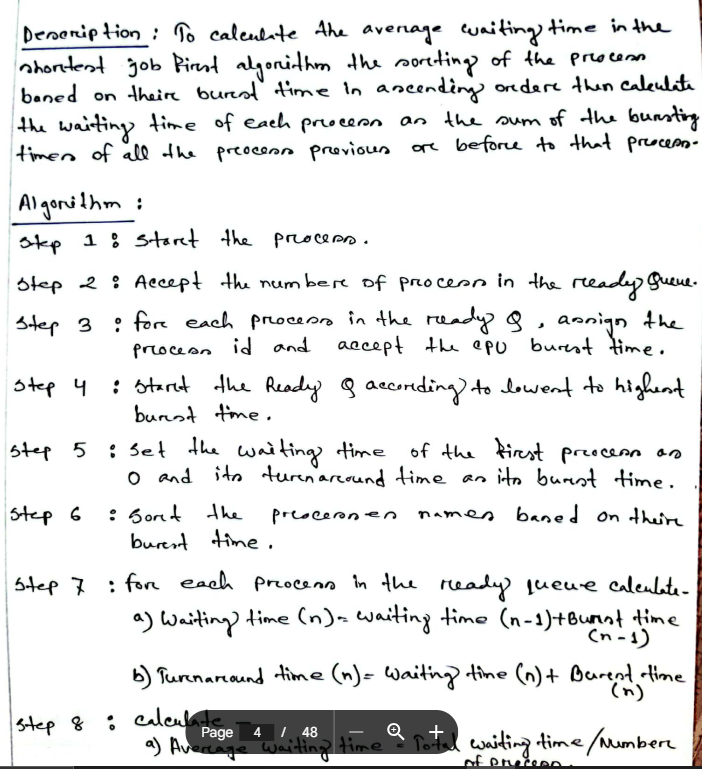 Description : To calculate the average waiting time in the
shortest job first algorithm the sorting of the process
based on their burst time in ascending order then calculate
the waiting time of each process as the sum of the bursting
times of all the process previous or before to that process.
Algorithm :
Step 1 : Start the process.
Step 2 : Accept the number of process in the ready Queue.
Step 3 : for each process in the ready Q, assign the
process id and accept the cpu burst time.
Step 4 : Start the Ready Q according to lowest to highest
burst time.
Step 5 : Set the waiting time of the first process as
0 and its turnaround time as its burst time.
Step 6 : Sort the processes names based on their
burst time.
Step 7 : for each process in the ready queue calculate-
a) Waiting time (n)= waiting time (n-1)+Burst time
(n-1)
b) Turnaround time (n)= Waiting time (n)+ Burst time
(n)
Step 8 : calculate –
Page 4 / 48 — +
a) Average waiting time = Total waiting time/Number
of process.